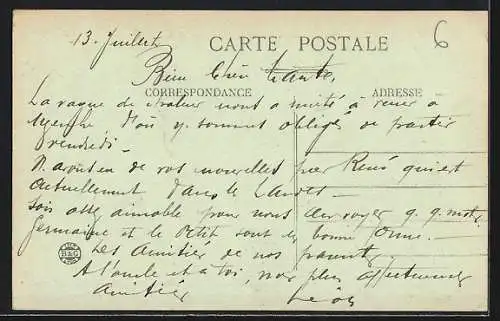 13. Juillet
6
CARTE POSTALE
Bien Chère tante,
CORRESPONDANCE
ADRESSE
La vague de chaleur nous a invité à venir à
nous y sommes obligés de partir
vendredi.
de vos nouvelles par René qui est
actuellement dans le Landes
sois assez aimable pour nous envoyer q. q. mots
Germaine et le Petit sont en bonne
Les amitiés de nos parents
A l'oncle et à toi, nos plus affectueuses
amitiés Léon
B&G